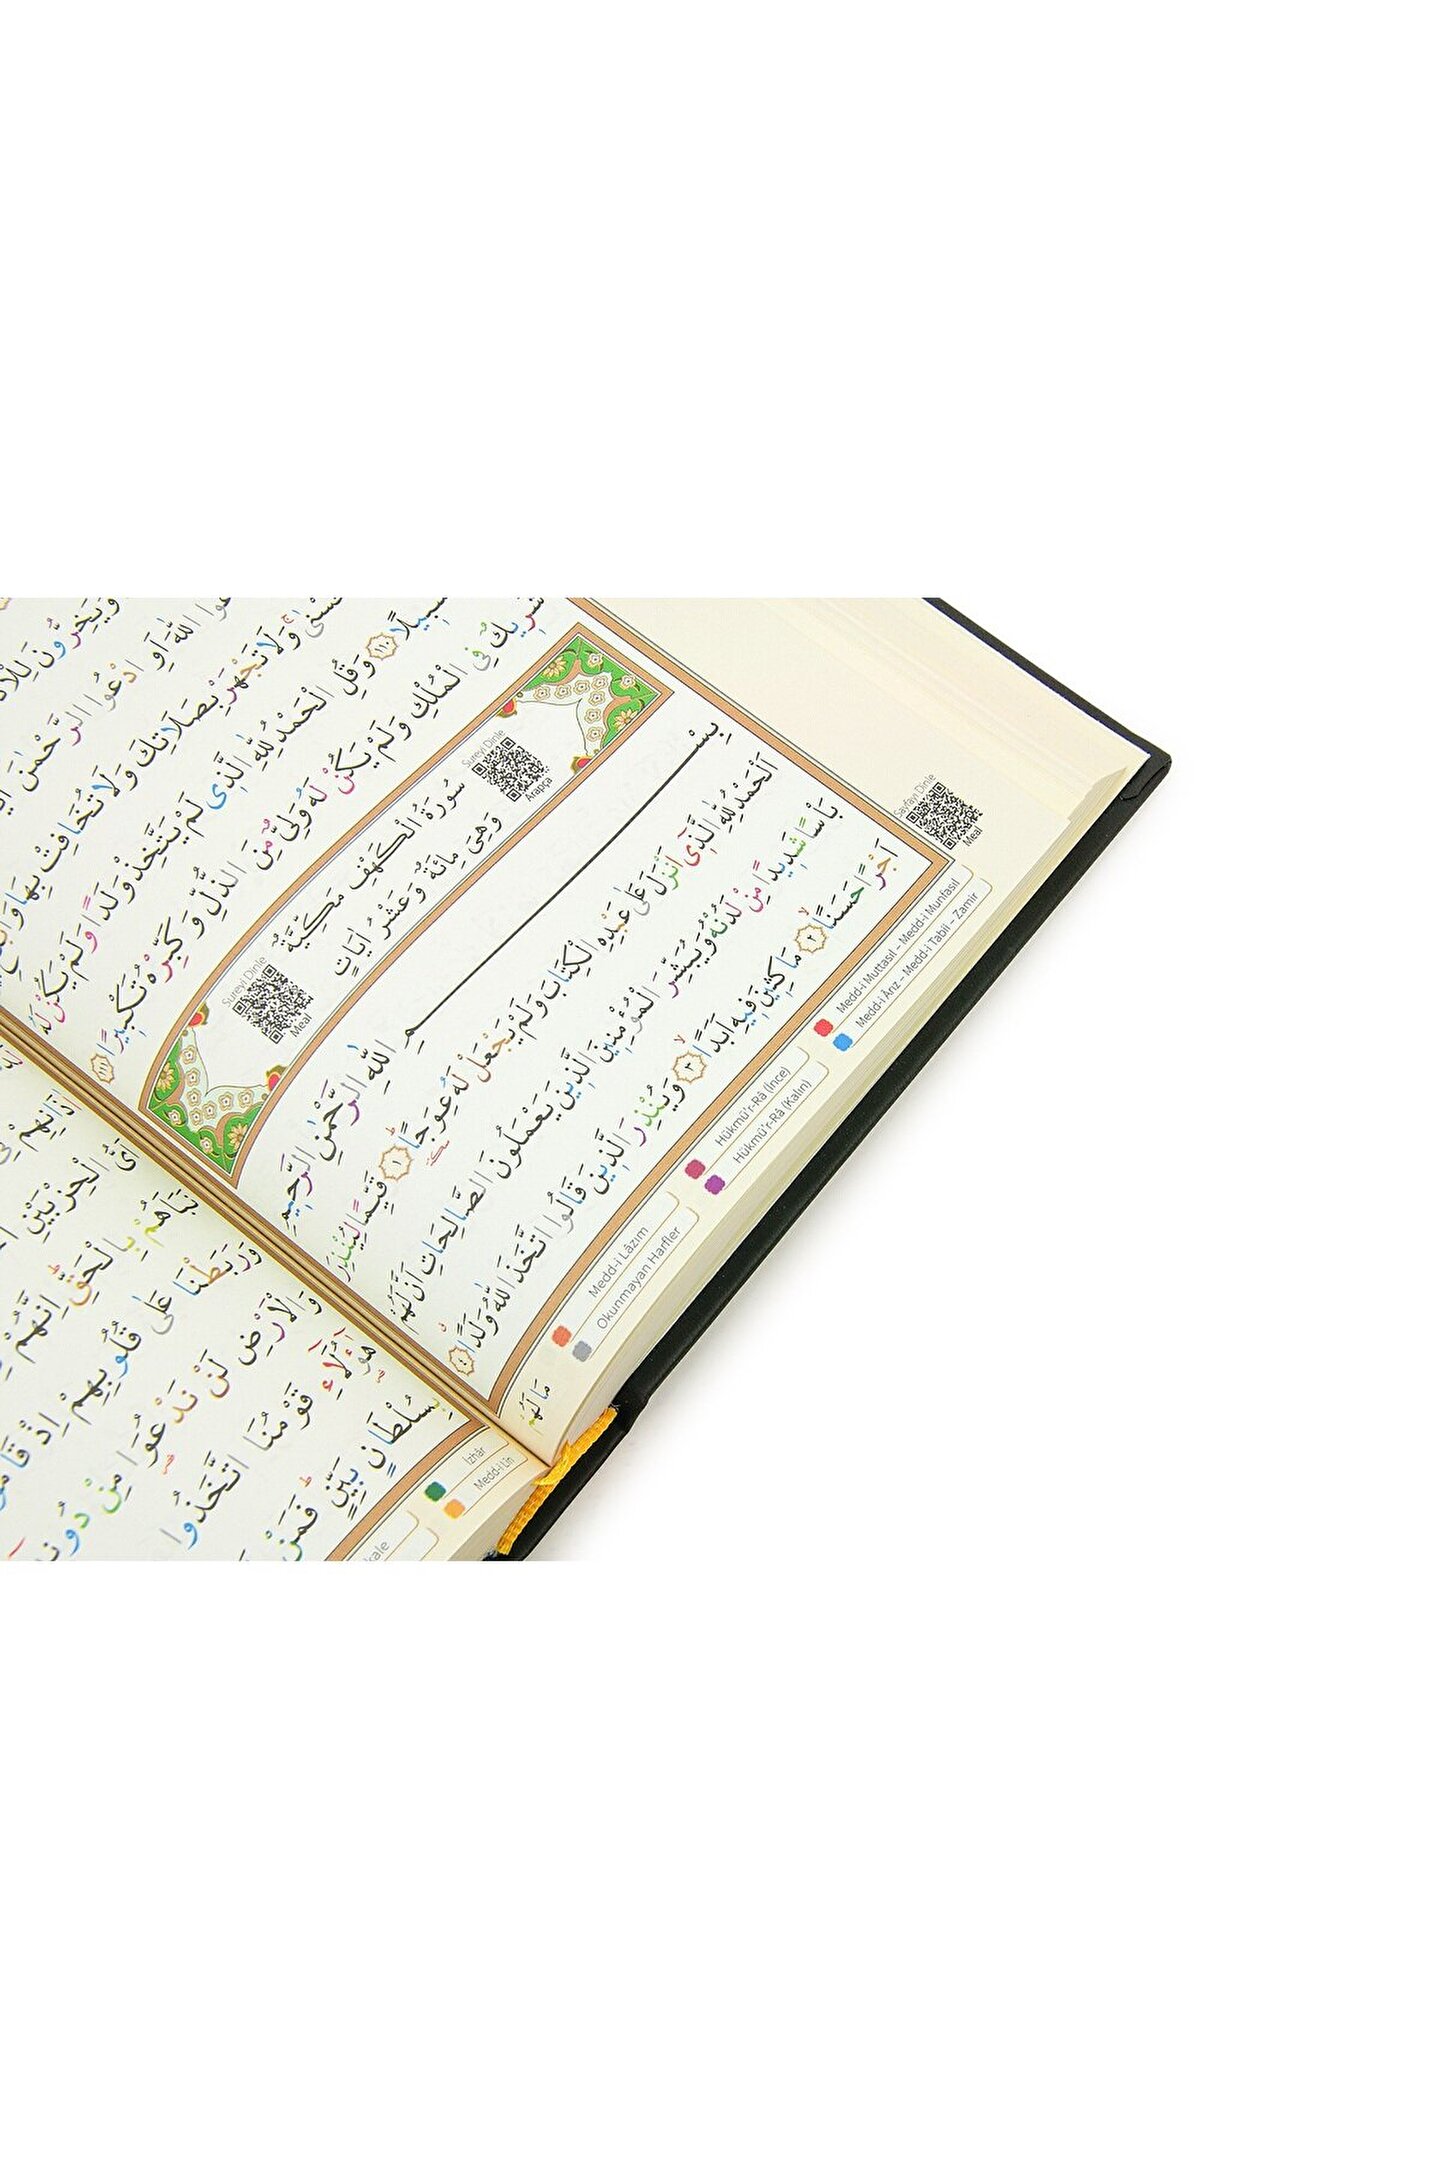 وَيَخِرُّونَ لِلْاَذْ
ادْعُوا اللّٰهَ اَوِ ادْعُوا الرَّحْمٰنَ
وَلَا تَجْهَرْ بِصَلَاتِكَ وَلَا تُخَافِتْ بِهَا وَابْتَغِ
سَبِيلًا ﴿١١٠﴾ وَقُلِ الْحَمْدُ لِلّٰهِ الَّذِى لَمْ يَتَّخِذْ وَلَدًا وَلَمْ يَكُنْ لَهُ
شَرِيكٌ فِى الْمُلْكِ وَلَمْ يَكُنْ لَهُ وَلِىٌّ مِنَ الذُّلِّ وَكَبِّرْهُ تَكْبِيرًا ﴿١١١﴾
Sureyi Dinle
Arapça
سُورَةُ الْكَهْفِ مَكِّيَّةٌ
وَهِىَ مِائَةٌ وَعَشْرُ اٰيَاتٍ
Sureyi Dinle
Meal
بِسْمِ اللّٰهِ الرَّحْمٰنِ الرَّحِيمِ
اَلْحَمْدُ لِلّٰهِ الَّذِٓى اَنْزَلَ عَلٰى عَبْدِهِ الْكِتَابَ وَلَمْ يَجْعَلْ لَهُ عِوَجًا ﴿١﴾ قَيِّمًا لِيُنْذِرَ
بَأْسًا شَدِيدًا مِنْ لَدُنْهُ وَيُبَشِّرَ الْمُؤْمِنِينَ الَّذِينَ يَعْمَلُونَ الصَّالِحَاتِ اَنَّ لَهُمْ
اَجْرًا حَسَنًا ﴿٢﴾ مَاكِثِينَ فِيهِ اَبَدًا ﴿٣﴾ وَيُنْذِرَ الَّذِينَ قَالُوا اتَّخَذَ اللّٰهُ وَلَدًا ﴿٤﴾
مَا لَهُمْ
Sayfayı Dinle
Meal
Medd-i Muttasıl - Medd-i Munfasıl
Medd-i Ârız - Medd-i Tabii - Zamir
Hükmü'r-Râ (İnce)
Hükmü'r-Râ (Kalın)
Medd-i Lâzım
Okunmayan Harfler
اَىُّ الْحِزْبَيْنِ
نَبَاَهُمْ بِالْحَقِّ اِنَّهُمْ
وَرَبَطْنَا عَلٰى قُلُوبِهِمْ اِذْ قَامُوا
وَالْاَرْضِ لَنْ نَدْعُوَا مِنْ دُونِهٓ
هٰٓؤُلَٓاءِ قَوْمُنَا اتَّخَذُوا
بِسُلْطَانٍ بَيِّنٍ فَمَنْ
İzhâr
Medd-i Lîn